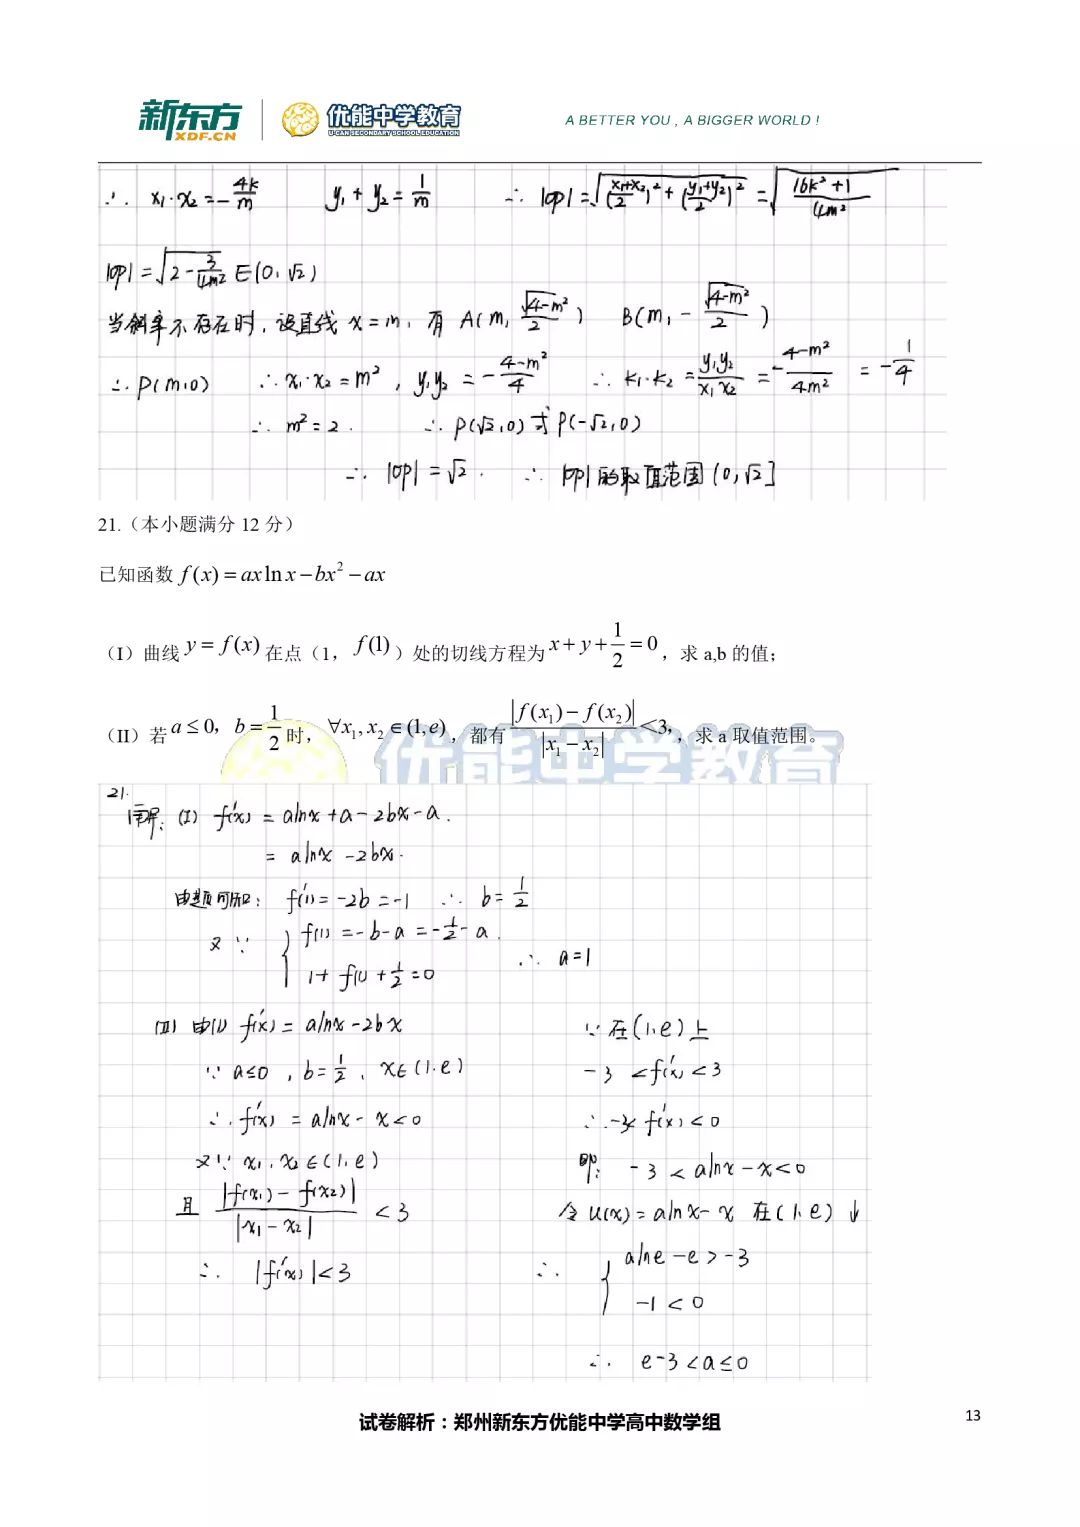 新东方 XDF.CN 优能中学教育 U-CAN SECONDARY SCHOOL EDUCATION A BETTER YOU , A BIGGER WORLD !
∴ x₁·x₂ = -4k/m y₁+y₂ = 1/m ∴ |OP| = √(((x₁+x₂)/2)² + ((y₁+y₂)/2)²) = √((16k²+1)/(4m²))
|OP| = √(2 - 3/(4m²)) ∈ (0, √2)
当斜率不存在时, 设直线 x=m, 有 A(m, √(4-m²)/2) B(m, -√(4-m²)/2)
∴ P(m,0) ∴ x₁·x₂ = m², y₁y₂ = -(4-m²)/4 ∴ k₁·k₂ = y₁y₂/x₁x₂ = -(4-m²)/(4m²) = -1/4
∴ m² = 2. ∴ P(√2,0) 或 P(-√2,0)
∴ |OP| = √2. ∴ |OP| 的取值范围 (0, √2]
21.（本小题满分 12 分）
已知函数 f(x) = ax ln x - bx² - ax
（I）曲线 y = f(x) 在点（1, f(1)）处的切线方程为 x + y + 1/2 = 0, 求 a,b 的值;
（II）若 a ≤ 0, b = 1/2 时, ∀x₁, x₂ ∈ (1, e), 都有 |f(x₁) - f(x₂)|/|x₁ - x₂| < 3, , 求 a 取值范围。
优能中学教育
21.
解: (I) f'(x) = alnx + a - 2bx - a.
= alnx - 2bx.
由题可知: f'(1) = -2b = -1 ∴ b = 1/2
又∵ { f(1) = -b-a = -1/2 - a.
1 + f(1) + 1/2 = 0 ∴ a = 1
(II) 由(I) f'(x) = alnx - 2bx
∵ a≤0, b = 1/2, x∈(1,e)
∴ f'(x) = alnx - x < 0
又∵ x₁, x₂ ∈ (1, e)
且 |f(x₁) - f(x₂)|/|x₁ - x₂| < 3
∴ |f'(x)| < 3
∵ 在(1,e)上
-3 < f'(x) < 3
∴ -3< f'(x) < 0
即: -3 < alnx - x < 0
令 u(x) = alnx - x 在(1,e) ↓
∴ { alne - e > -3
-1 < 0
∴ e-3 < a ≤ 0
试卷解析：郑州新东方优能中学高中数学组
13